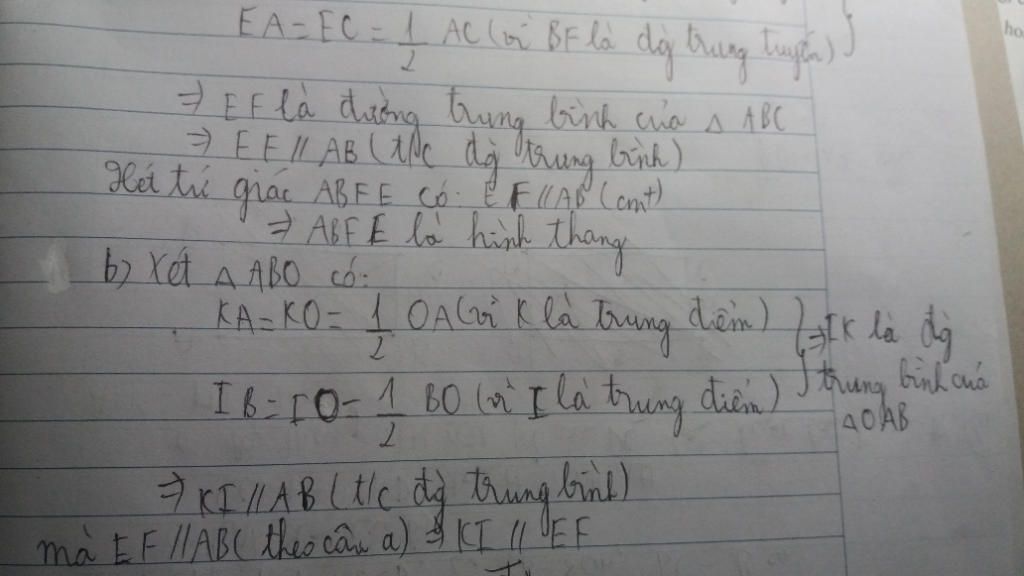 EA = EC = 1/2 AC (vì BF là đg trung tuyến) }
⇒ EF là đường trung bình của △ ABC
⇒ EF // AB (t/c đg trung bình)
Xét tứ giác ABFE có: EF // AB (cmt)
⇒ ABFE là hình thang
b) Xét △ ABO có:
KA = KO = 1/2 OA (vì K là trung điểm) } ⇒ IK là đg
IB = IO = 1/2 BO (vì I là trung điểm) } trung bình của
△OAB
⇒ KI // AB (t/c đg trung bình)
mà EF // AB (theo câu a) ⇒ KI // EF